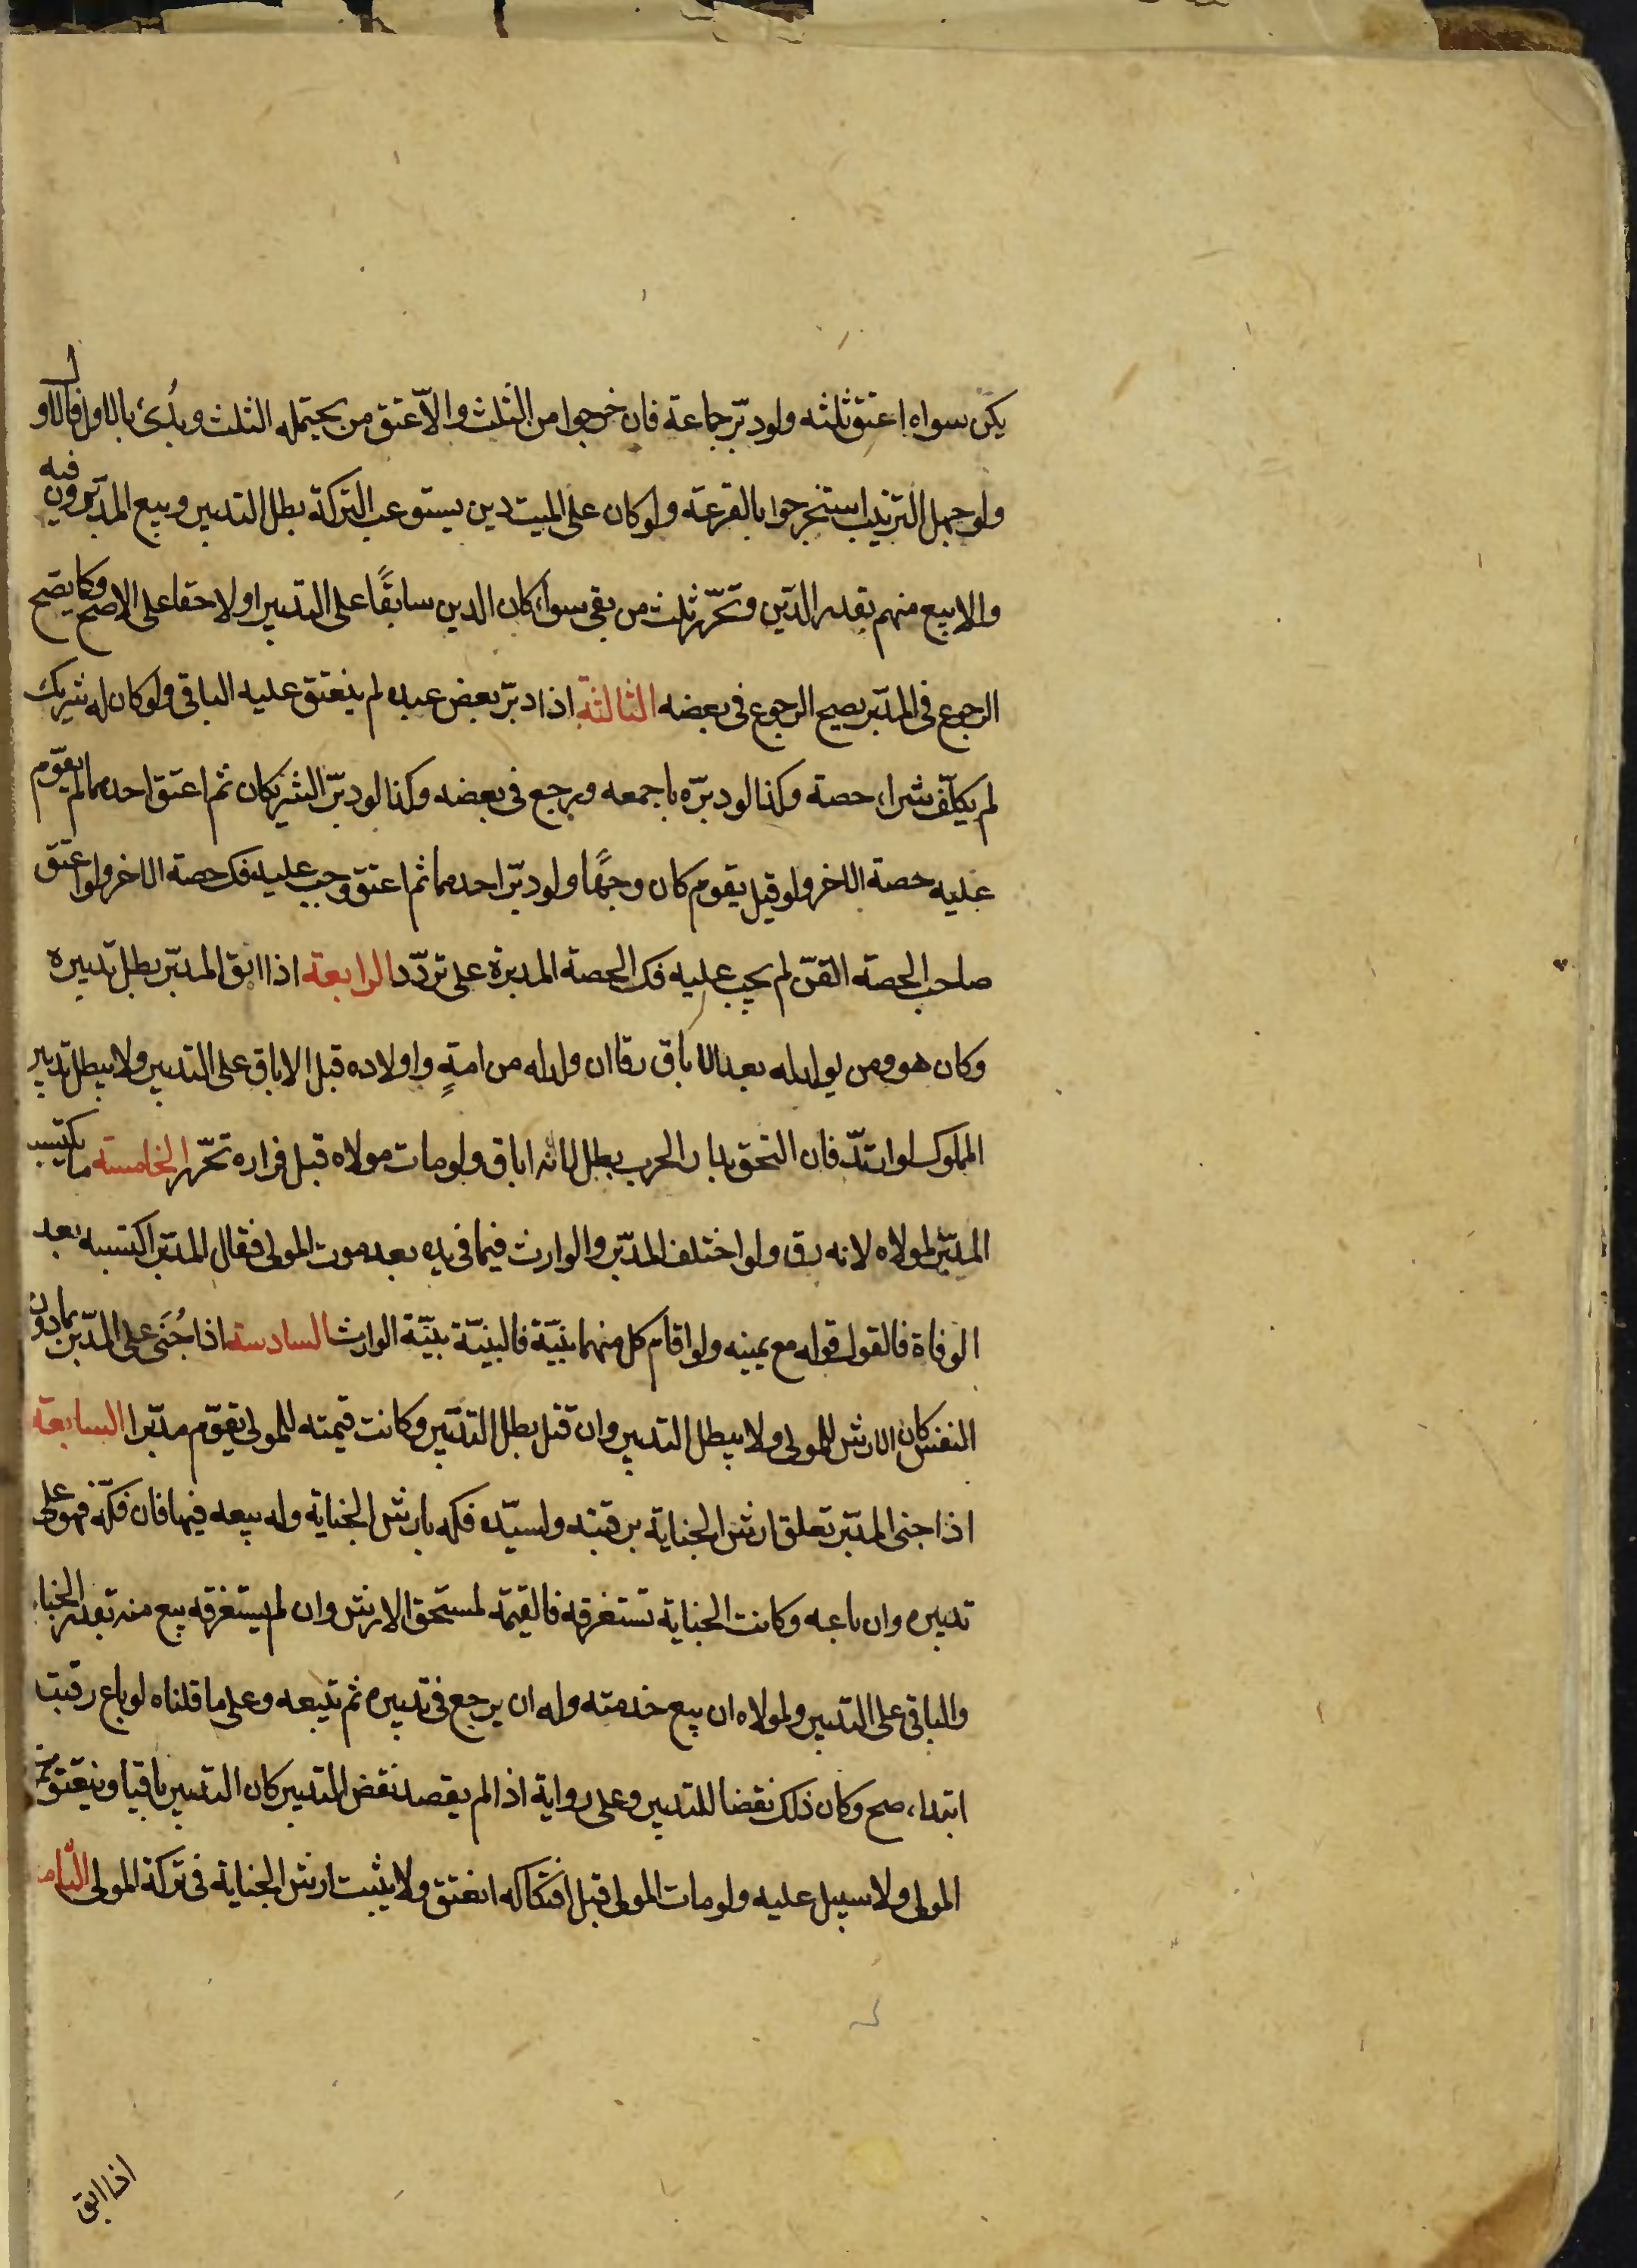 يكن سواه اعتق ثلثه ولو دبّر جماعة فان خرجوا من الثلث والّا عتق من يحتمله الثلث وبُدئ بالاول فالاول
ولو جهل الترتيب استخرجوا بالقرعة ولو كان على الميت دين يستوعب التركة بطل التدبير وبيع المدبّرون فيه
والا بيع منهم بقدر الدّين وتحرّر ثلث من بقى سواء كان الدين سابقًا على التدبير او لاحقا على الاصح وكما يصح
الرجوع فى المدبّر يصح الرجوع فى بعضه الثالثة اذا دبّر بعض عبده لم ينعتق عليه الباقى ولو كان له شريك
لم يكلّف شراء حصة وكذا لو دبّره باجمعه ورجع فى بعضه وكذا لو دبّر الشريكان ثم اعتق احدهما لم يقوّم
عليه حصة الاخر ولو قيل يقوم كان وجهًا ولو دبّر احدهما ثم اعتق وجب عليه فك حصة الاخر ولو اعتق
صاحب الحصة القنّ لم يجب عليه فك الحصة المدبرة على تردّد الرابعة اذا ابق المدبّر بطل تدبيره
وكان هو ومن يولد له بعد الاباق رقا ان ولد له من امةٍ واولاده قبل الاباق على التدبير ولا يبطل تدبير
المملوك لو ارتدّ فان التحق بدار الحرب بطل لانه اباق ولو مات مولاه قبل فراره تحرّر الخامسة ما يكتسب
المدبّر لمولاه لانه رق ولو اختلف المدبّر والوارث فيما فى يده بعد موت المولى فقال المدبّر اكتسبته بعد
الوفاة فالقول قوله مع يمينه ولو اقام كل منهما بيّنة فالبيّنة بيّنة الوارث السادسة اذا جُنى على المدّبر بما دون
النفس كان الارش للمولى ولا يبطل التدبير وان قتل بطل التدبير وكانت قيمته للمولى يقوّم مدبّرا السابعة
اذا جنى المدبّر تعلق ارش الجناية برقبته ولسيّده فكه بارش الجناية وله بيعه فيها فان فكّه فهو على
تدبيره وان باعه وكانت الجناية تستغرقه فالقيمة لمستحق الارش وان لم يستغرقه بيع منه بقدر الجناية
والباقى على التدبير ولمولاه ان يبيع خدمته وله ان يرجع فى تدبيره ثم يبيعه وعلى ما قلناه لو باع رقبته
ابتداء صح وكان ذلك نقضا للتدبير وعلى رواية اذا لم يقصد نقض التدبير كان التدبير باقيا وينعتق
المولى ولا سبيل عليه ولو مات المولى قبل افتكاكه انعتق ولا يثبت ارش الجناية فى تركة المولى الثامنة
اذا ابق